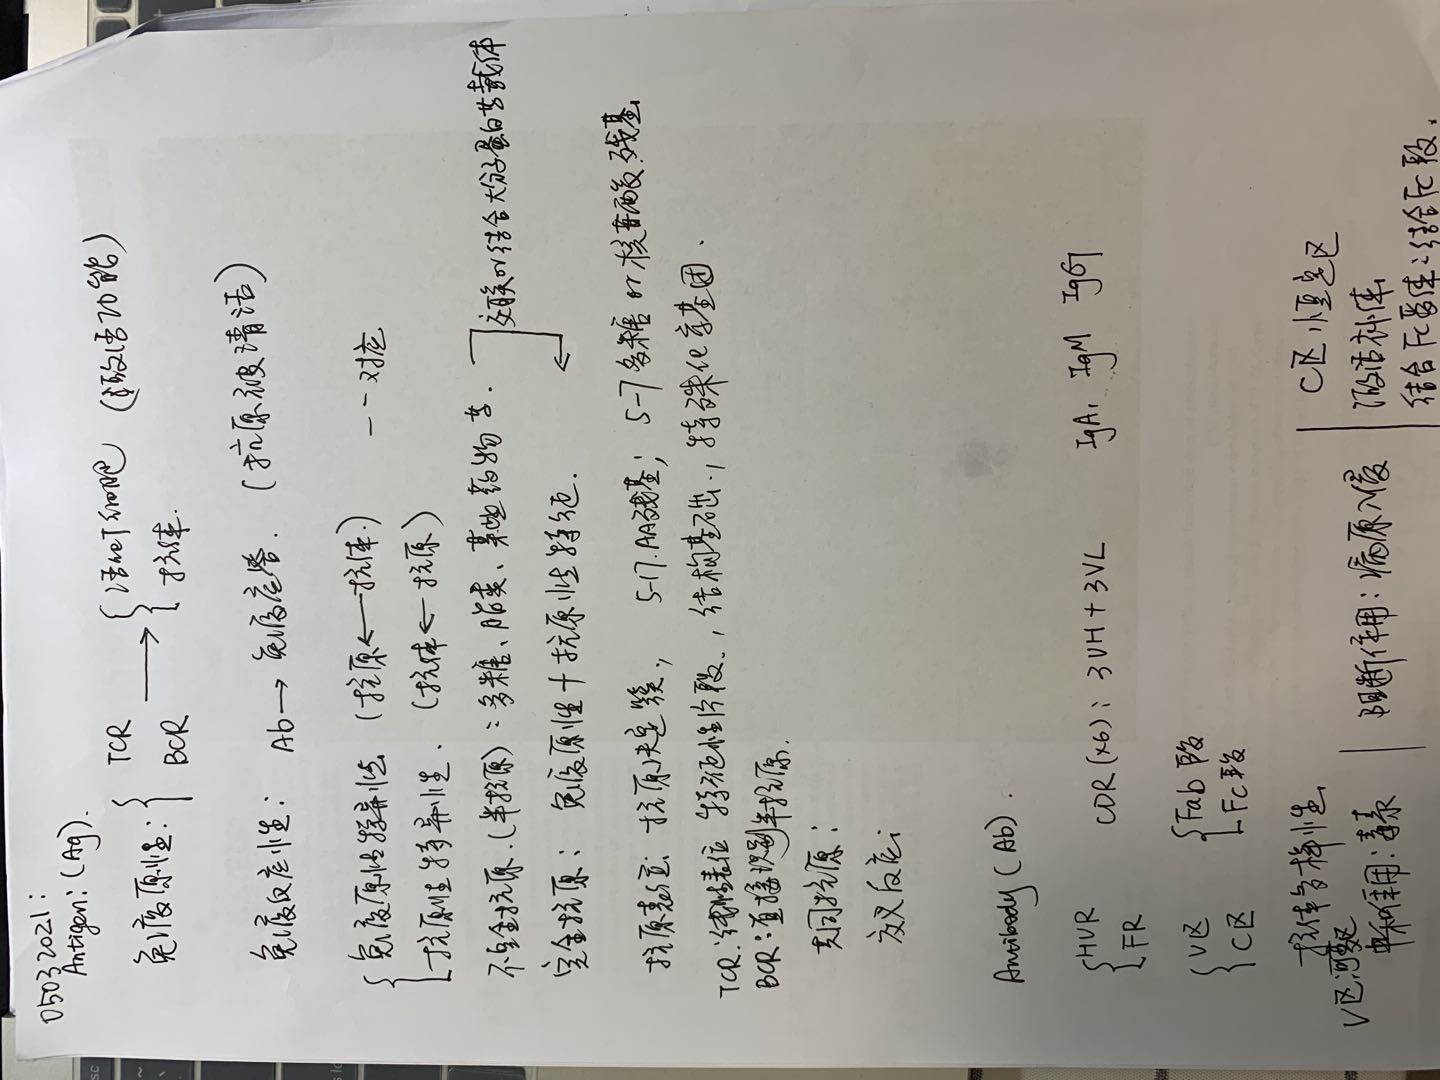 05032021:
Antigen: (Ag).
免疫原性: { TCR BCR → { 活化T细胞 抗体. (激活功能)
免疫反应性: Ab → 免疫应答. (抗原被清洁)
{ 免疫原性特异性 (抗原←抗体.) 一一对应
抗原性特异性. (抗体←抗原)
不完全抗原.(半抗原):多糖、脂类、某些药物等.
交联or结合大分子蛋白等载体
完全抗原: 免疫原性+抗原性特征.
抗原表位: 抗原决定簇, 5-17.AA残基; 5-7多糖or核苷酸残基
TCR:线性表位 特征性片段., 结构基础., 特殊化学基团.
BCR:直接识别半抗原.
共同抗原:
交叉反应:
Antibody (Ab).
{ HVR FR CDR (x6): 3VH + 3VL IgA, IgM IgG
{ V区 C区 { Fab段 Fc段
抗体多样性
V区:可变区
中和作用:毒素
阻断作用:病原入侵
C区,恒定区
激活补体
结合Fc受体:结合Fc段.